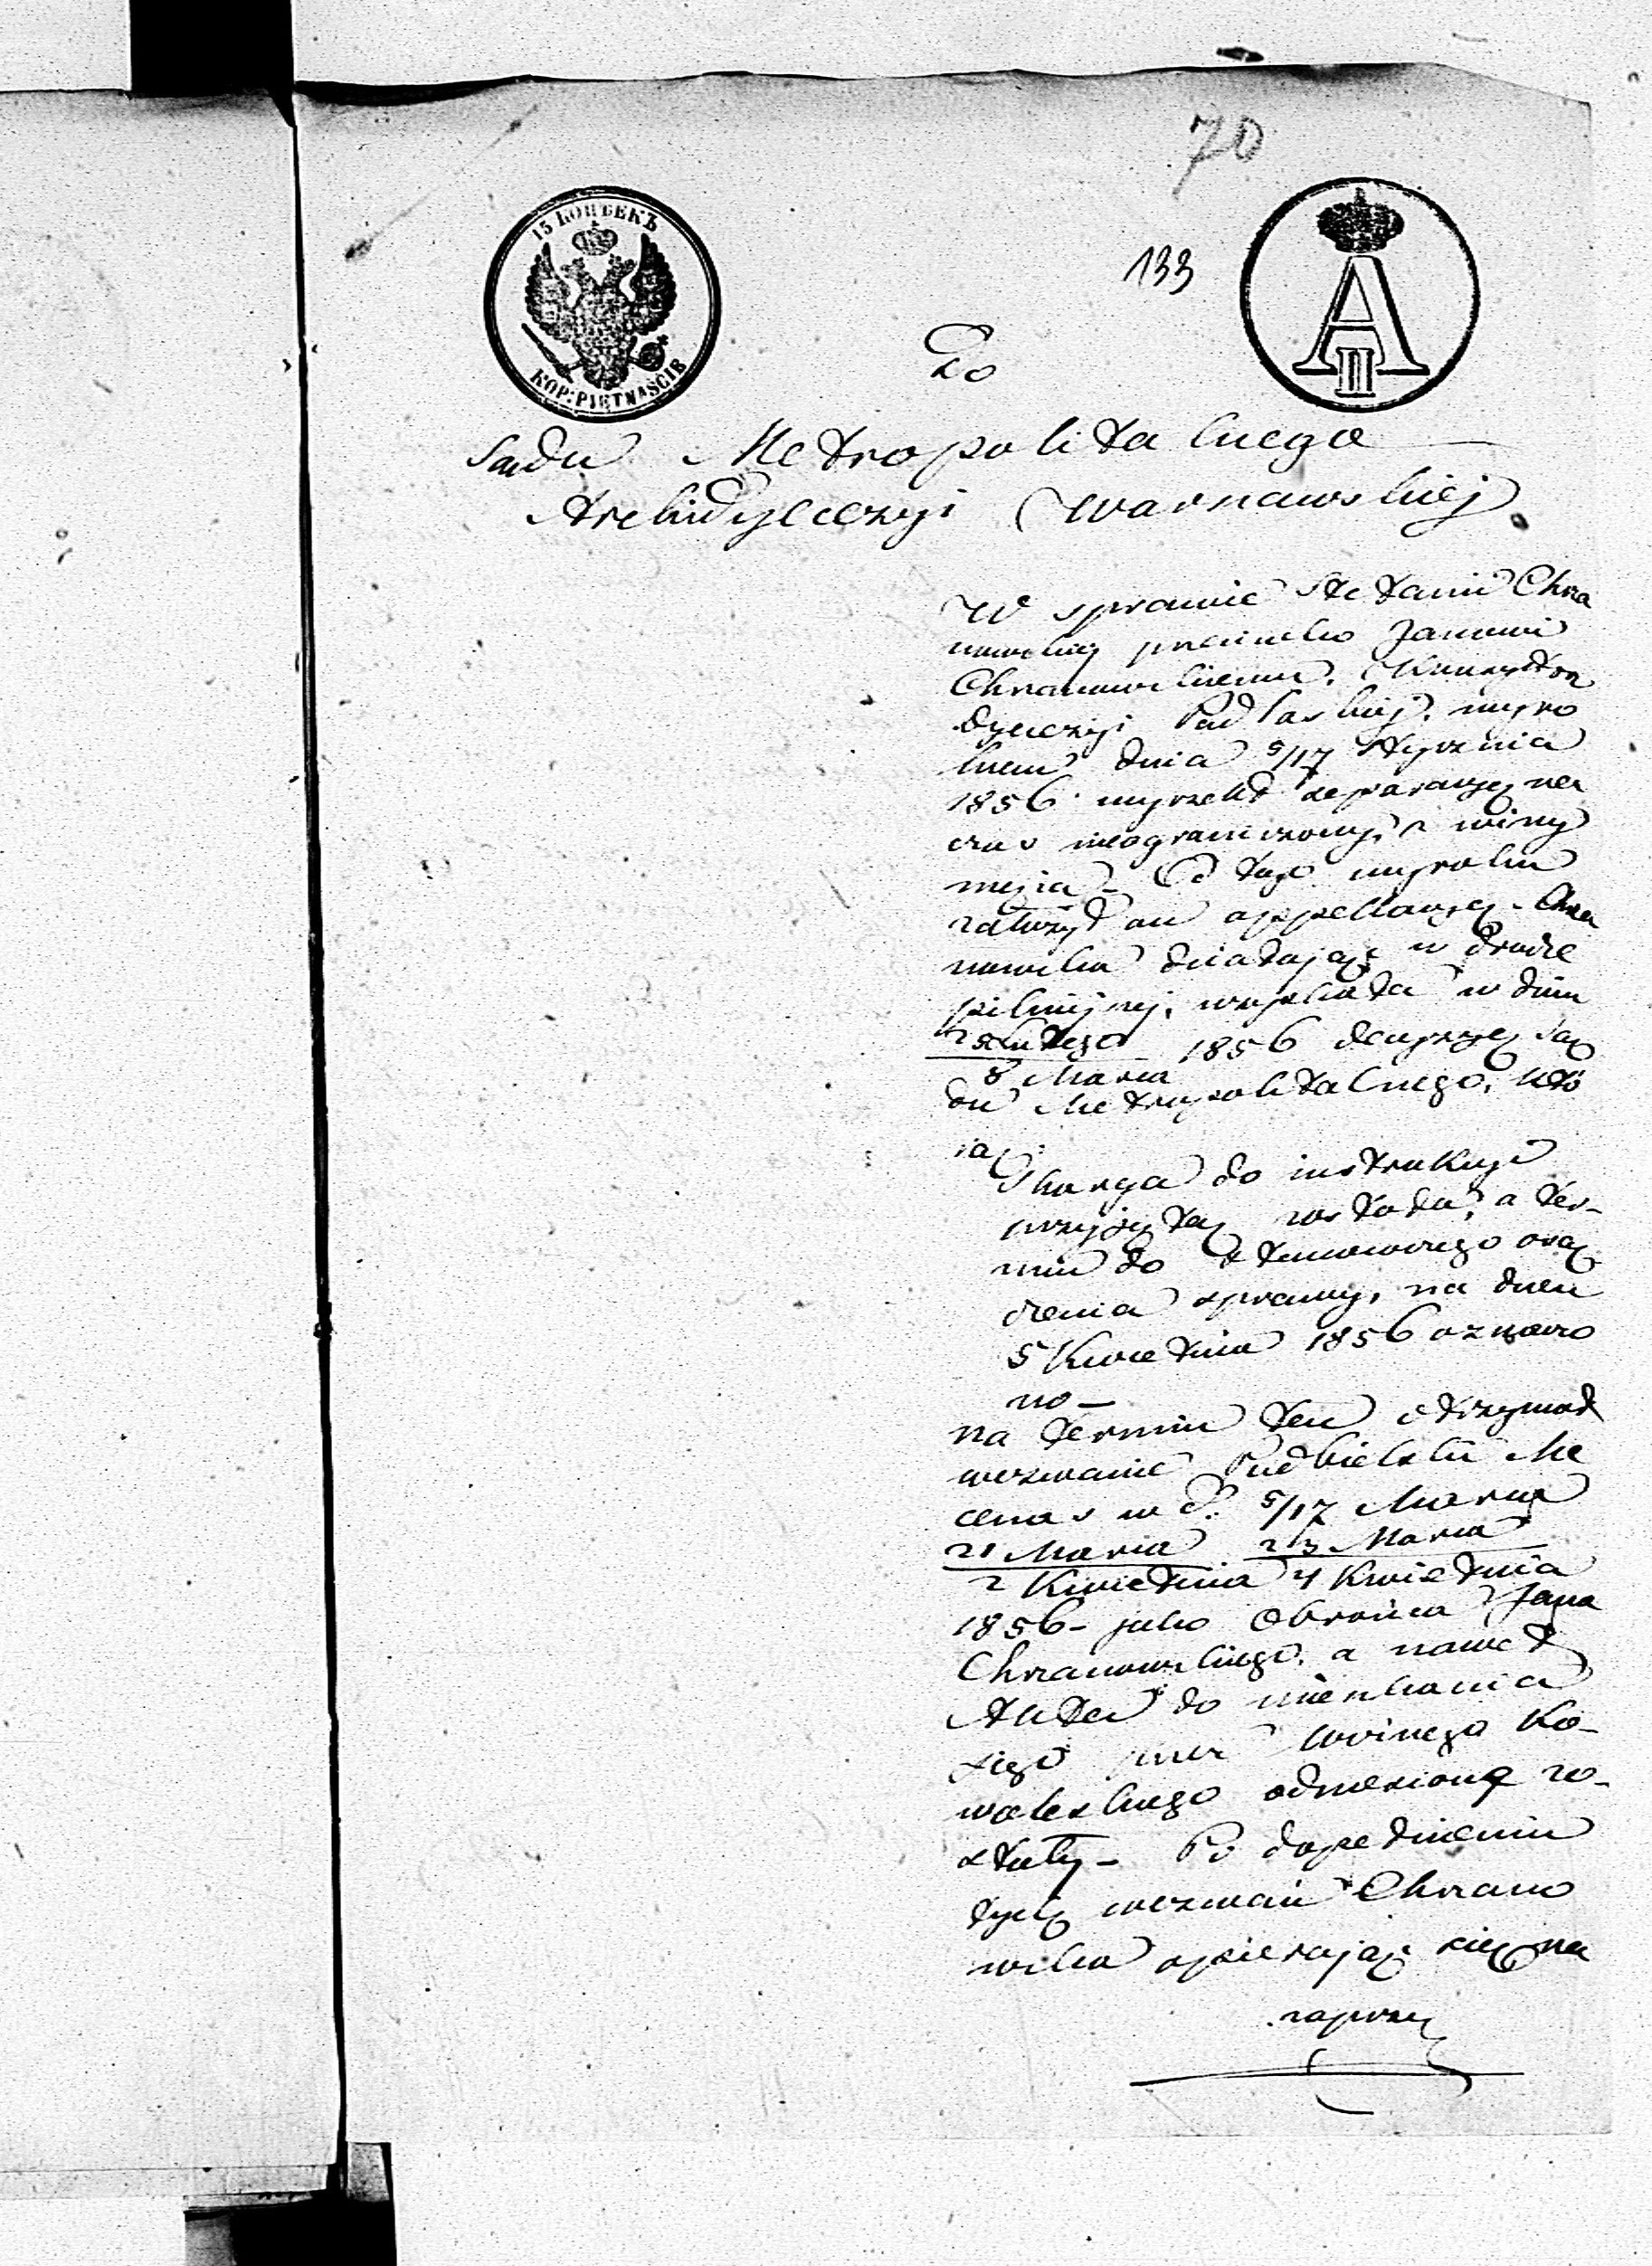 70
15 КОПѢЕКЪ
KOP: PIĘTNAŚCIE
133
A II
Do
Sądu Metropolitalnego
Archidyecezyi Warszawskiej
W sprawie Stefanii Chrza
nowskiej przeciwko Janowi
Chrzanowskiemu, Konsystorz
dyecezyi Podlaskiej, wyro
kiem dnia 5/17 Stycznia
1856 wyrzekł separacyę na
czas nieograniczony, z winy
męża – Od tego wyroku
założył on appellacyę – Chrza
nowska działając w drodze
pilniejszej, wyjednała w dniu
25 Lutego
8 Marca 1856 decyzyę Są
du Metropolitalnego, któ
rą:
Skarga do instrukcyi
przyjętą została, a ter-
min do stanowczego osą
dzenia sprawy, na dzień
5 Kwietnia 1856 oznaczo
no –
na termin ten otrzymał
wezwanie Podbielski Me
cenas w d. 5/17 Marca
21 Marca 23 Marca
2 Kwietnia 4 Kwietnia
1856 – jako Obrońca Jana
Chrzanowskiego, a nawet
Akta do mieszkania
jego przez Woźnego Ko-
walskiego odniesione zo-
stały – Po dopełnieniu
tych wezwań Chrzano
wska opierając się na
zaprzy